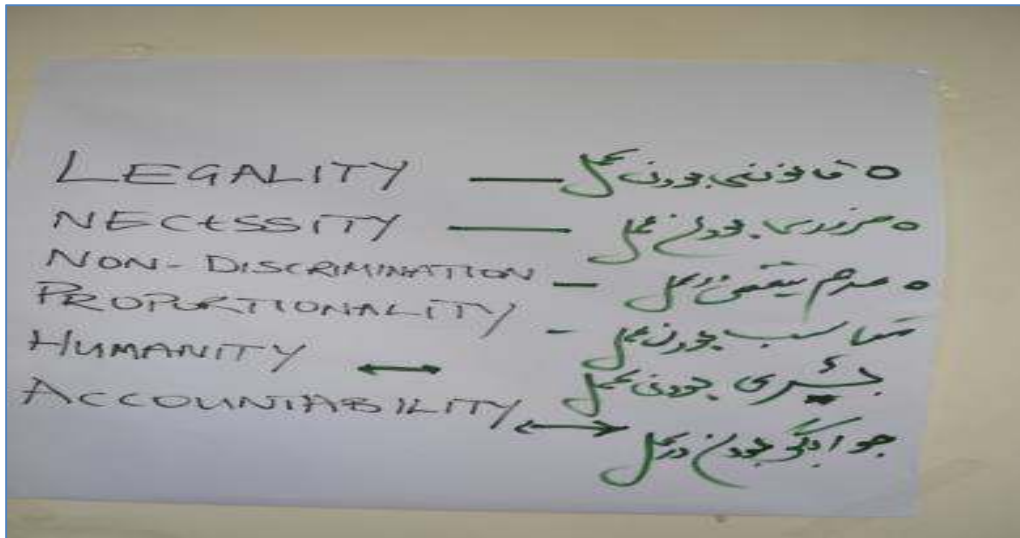 LEGALITY — قانونی بودن عمل
NECESSITY — ضروری بودن عمل
NON-DISCRIMINATION — عدم تبعیض در عمل
PROPORTIONALITY - متناسب بودن عمل
HUMANITY ↔ بشری بودن عمل
ACCOUNTABILITY ↔ جوابگو بودن در عمل